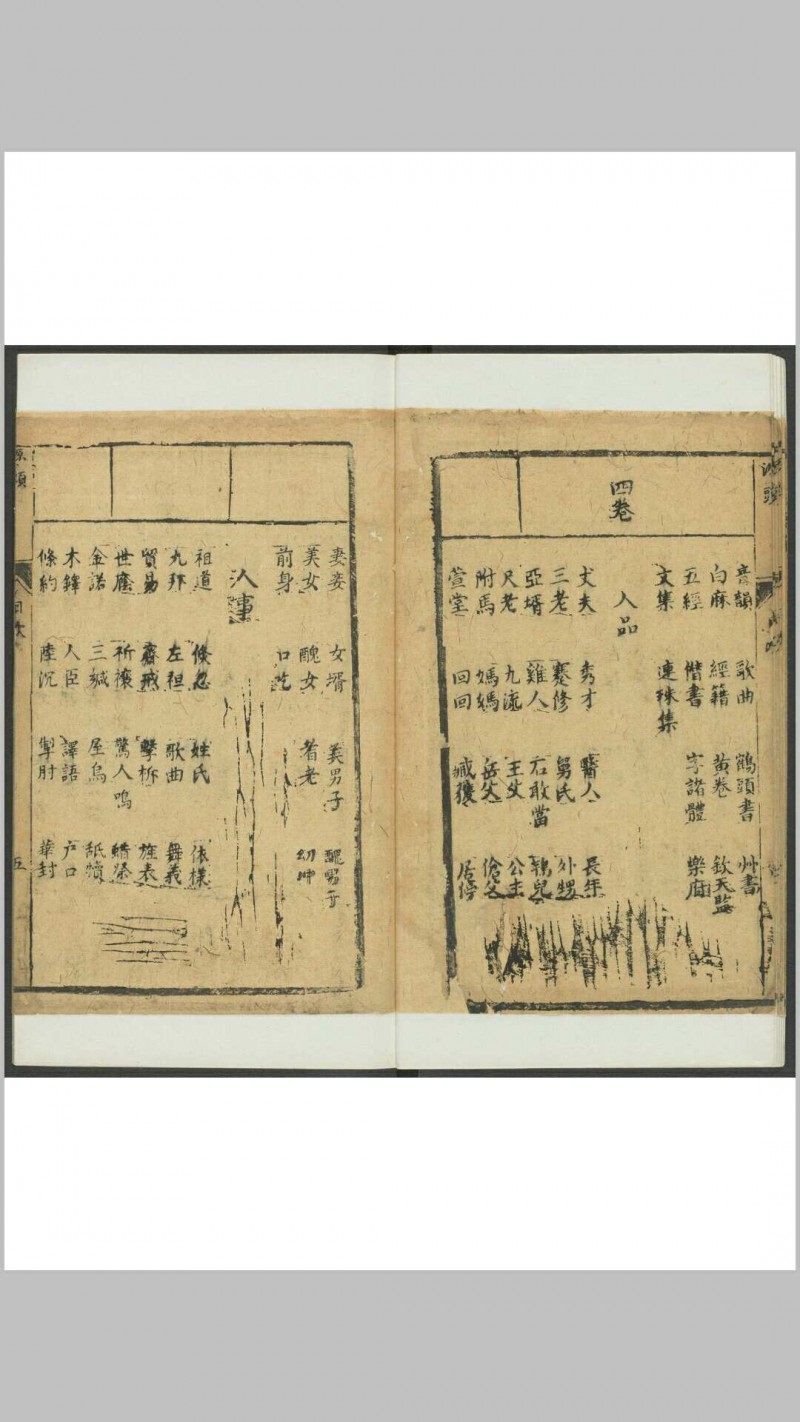 音韻 歌曲 鶴頭書 艸書
白麻 經籍 黃卷 欽天監
五經 借書 字諸體 樂府
文集 連珠集
四卷
人品
丈夫 秀才 醫人 長年
三老 蹇修 舅氏 外甥
亞壻 雞人 石敢當 鴉兒
尺老 九流 王父 公主
附馬 媽媽 岳父 傖父
萱堂 回回 臧獲 居停
妻妾 女壻 美男子 醜男子
美女 醜女 耆老 幼冲
前身 口吃
人事
祖道 倏忽 姓氏 依樣
九邦 左袒 歌曲 舞義
貿易 齋戒 擊柝 旌表
世廕 祈禳 驚人鳴 蜡祭
金諾 三緘 屋烏 舐犢
木鐸 人臣 譯語 户口
條約 陸沉 掣肘 華封
目次
五